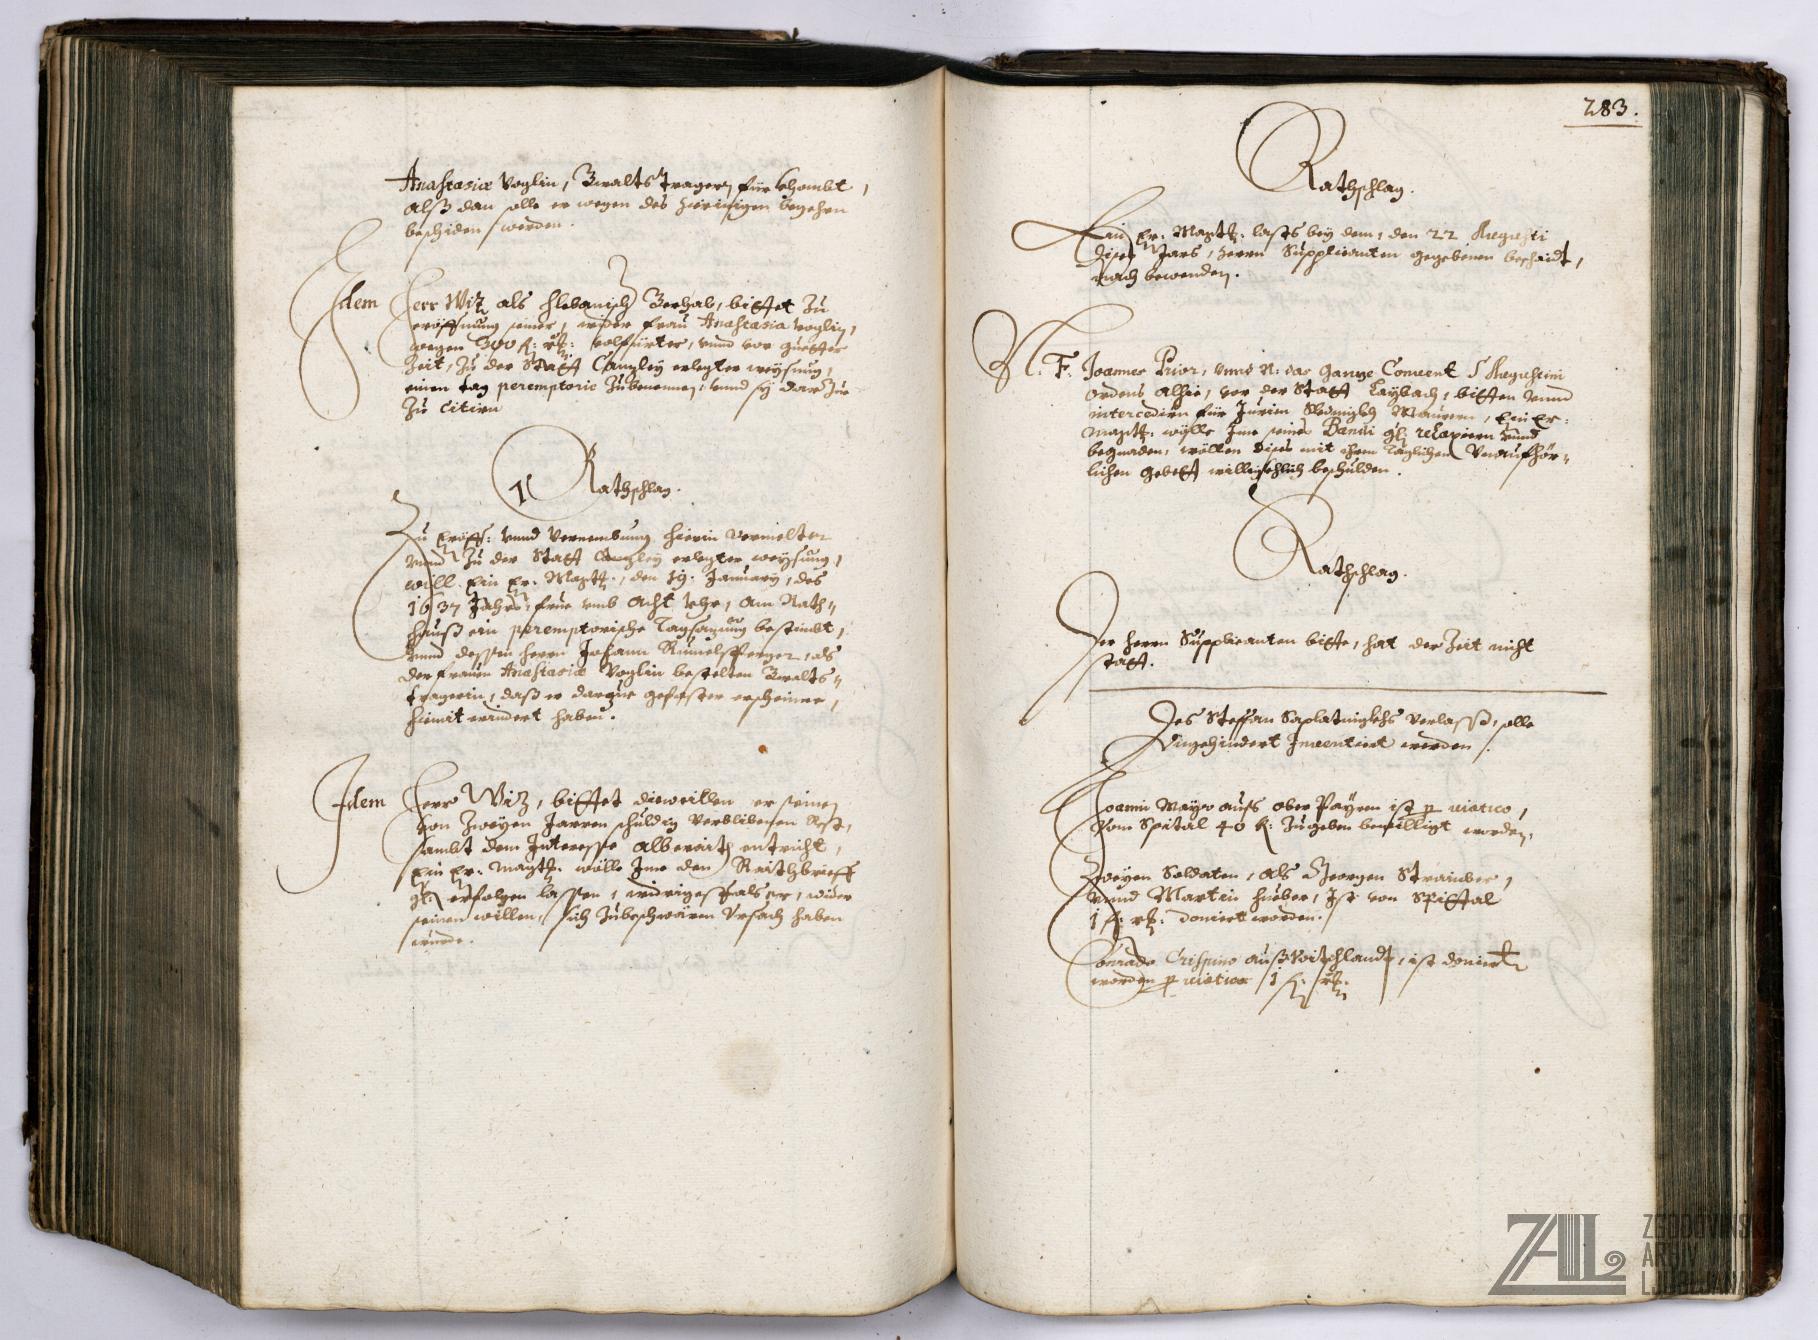 Anastasiæ Voglin, Gwalts trager, für khombt,
alß dan solle er wegen des heürigen begehrn
beschiden werden.
Idem Herr Wiz als Hlebanisch Gerhab, bittet zu
eröffnung seiner, wider Frau Anastasia Voglin,
wegen 300 fl: rh: volfürter, vnnd vor guetter
Zeit, zu der Statt Canzley erlegter weysung,
einen tag peremptorie zubenennen, vnnd sy darzue
zu citirn
Rathschlag.
Zu Eröff: vnnd Vernembung hierin vermelter
vnnd zu der Statt Canzley erlegter weysung,
will Ein Er: Magtt:, den 19. January, des
1637 Jahrs, frue vmb acht Vhr, am Rath-
hauß ein peremptorische Tagsazung bestimbt,
vnnd dessen herrn Johann Rumelsperger, als
der Frauen Anastasiæ Voglin bestelten Gwalts-
tragern, daß er darzue gefaster erscheine,
hiemit erindert haben.
Idem Herr Wiz, bittet dieweillen er seinen
von zweyen Jarren schuldig verblibenen Rest,
sambt dem Interesse alberaith entricht,
Ein Er: Magtt: wölle Ime den Raithbrieff
gl: erfolgen lassen, widrigesfals er, wider
seinen willen, sich zubeschwären Vrsach haben
wurde.
283.
Rathschlag.
Ein Er: Magtt: lasts bey dem, den 22 Augusti
dises Jars, herrn Supplicanten gegebenen beschaidt,
nach bewenden.
N. F. Joannes Prior, vnnd N: das ganze Conuent S Augustini
Ordens alhie, vor der Statt Laybach, bitten vnnd
intercedirn für Jurien Maurern, Ein Er:
Magtt: wölle Ime seines Banni gl: relaxiern vnnd
begnaden, wöllen dises mit ihrem täglichen Vnaufhör-
lichen gebett williglich beschulden.
Rathschlag.
Der herrn Supplicanten bitte, hat der Zeit nicht
statt.
Des Steffan Saplatnigkhs Verlaß, solle
Vngehindert Inuentiert werden.
Joanni Mayr aufs ober Payrn ist p uiatico,
vom Spital 40 k: zugeben bewilligt worden.
Zweyen Soldaten, als Georgen Strainber,
vnnd Martin Hueber, Ist von Spittal
1 fl: rh: doniert worden.
Conrado Crispino auß Voitschlandt, ist doniert
worden p uiatico 1 fl: rh:
ZAL
ZGODOVINSKI
ARHIV
LJUBLJANA